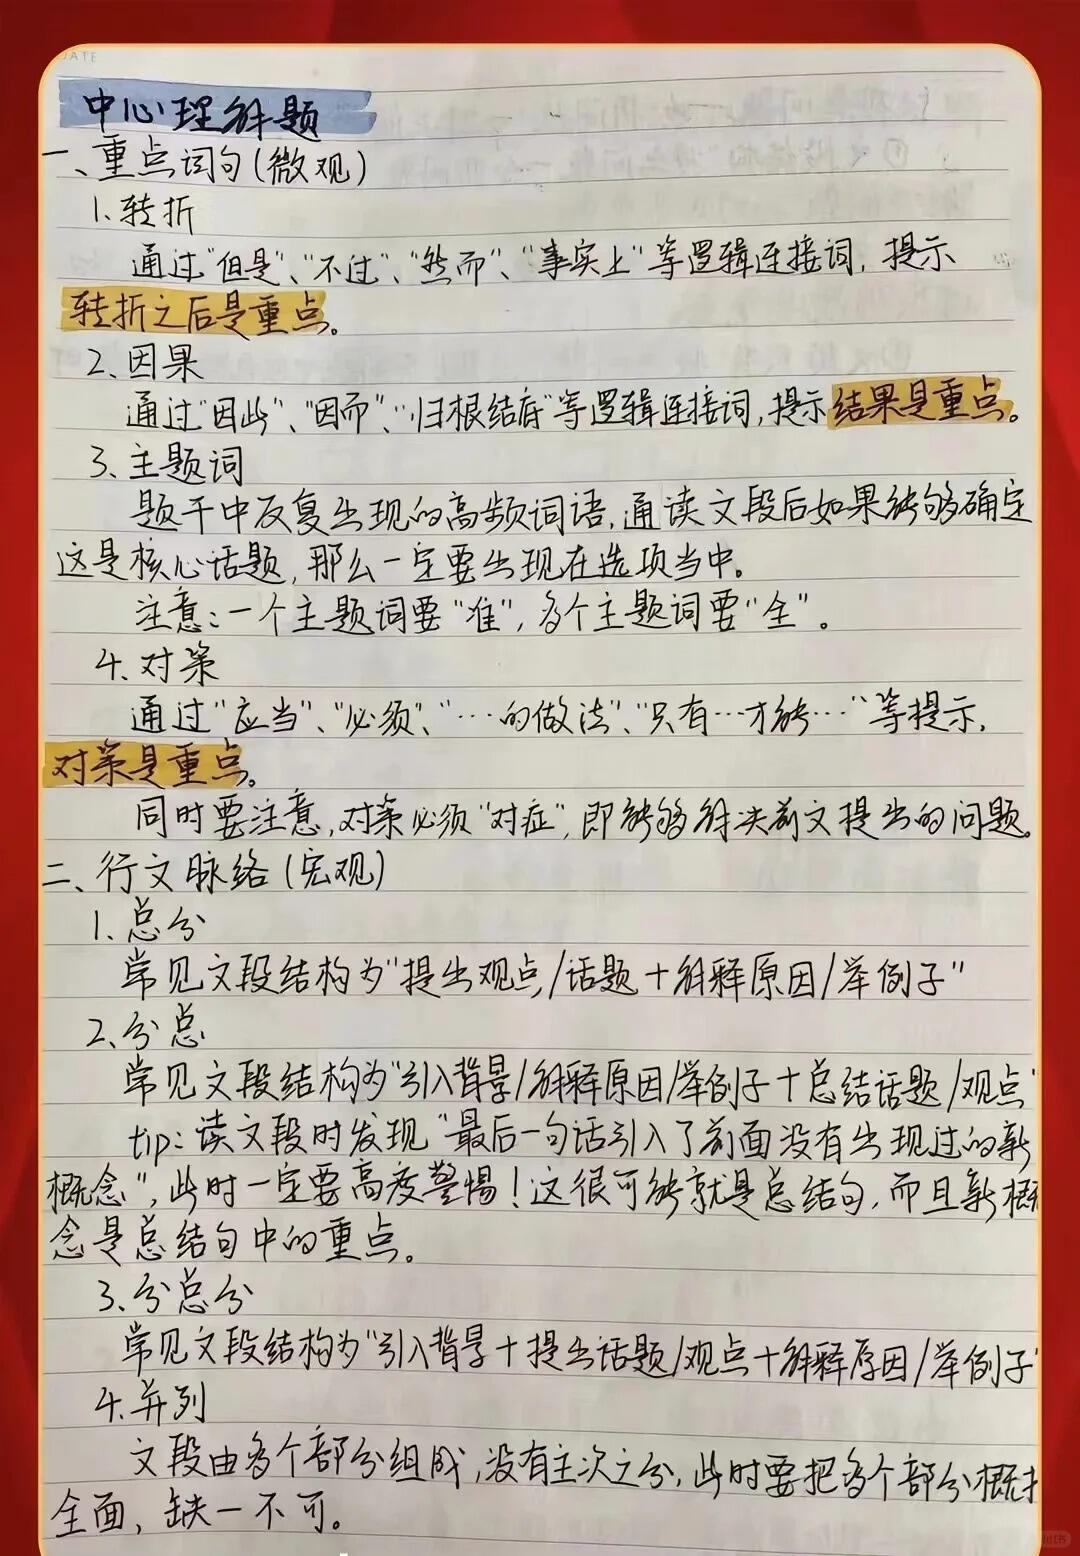 DATE
中心理解题
一、重点词句(微观)
1.转折
通过"但是"、"不过"、"然而"、"事实上"等逻辑连接词,提示
转折之后是重点。
2.因果
通过"因此"、"因而"、"归根结底"等逻辑连接词,提示结果是重点。
3.主题词
题干中反复出现的高频词语,通读文段后如果能够确定
这是核心话题,那么一定要出现在选项当中。
注意:一个主题词要"准",多个主题词要"全"。
4.对策
通过"应当"、"必须"、"…的做法"、"只有…才能…"等提示,
对策是重点。
同时要注意,对策必须"对症",即能够解决前文提出的问题。
二、行文脉络(宏观)
1.总分
常见文段结构为"提出观点/话题+解释原因/举例子"
2.分总
常见文段结构为"引入背景/解释原因/举例子+总结话题/观点"
tip:读文段时发现"最后一句话引入了前面没有出现过的新
概念",此时一定要高度警惕!这很可能就是总结句,而且新概
念是总结句中的重点。
3.分总分
常见文段结构为"引入背景+提出话题/观点+解释原因/举例子"
4.并列
文段由多个部分组成,没有主次之分,此时要把多个部分概括
全面,缺一不可。